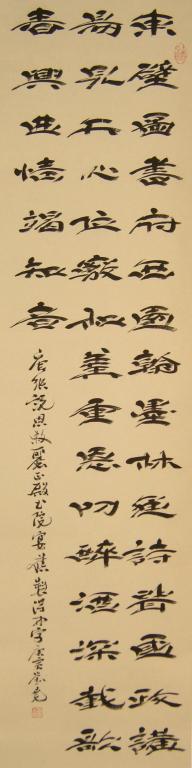 東壁圖書府西園翰墨林誦詩聞國政講
易見天心位竊和羹重恩叨醉酒深載歌
春興曲情竭知音
唐張說恩敕麗正殿書院宴應製得林字庚寅